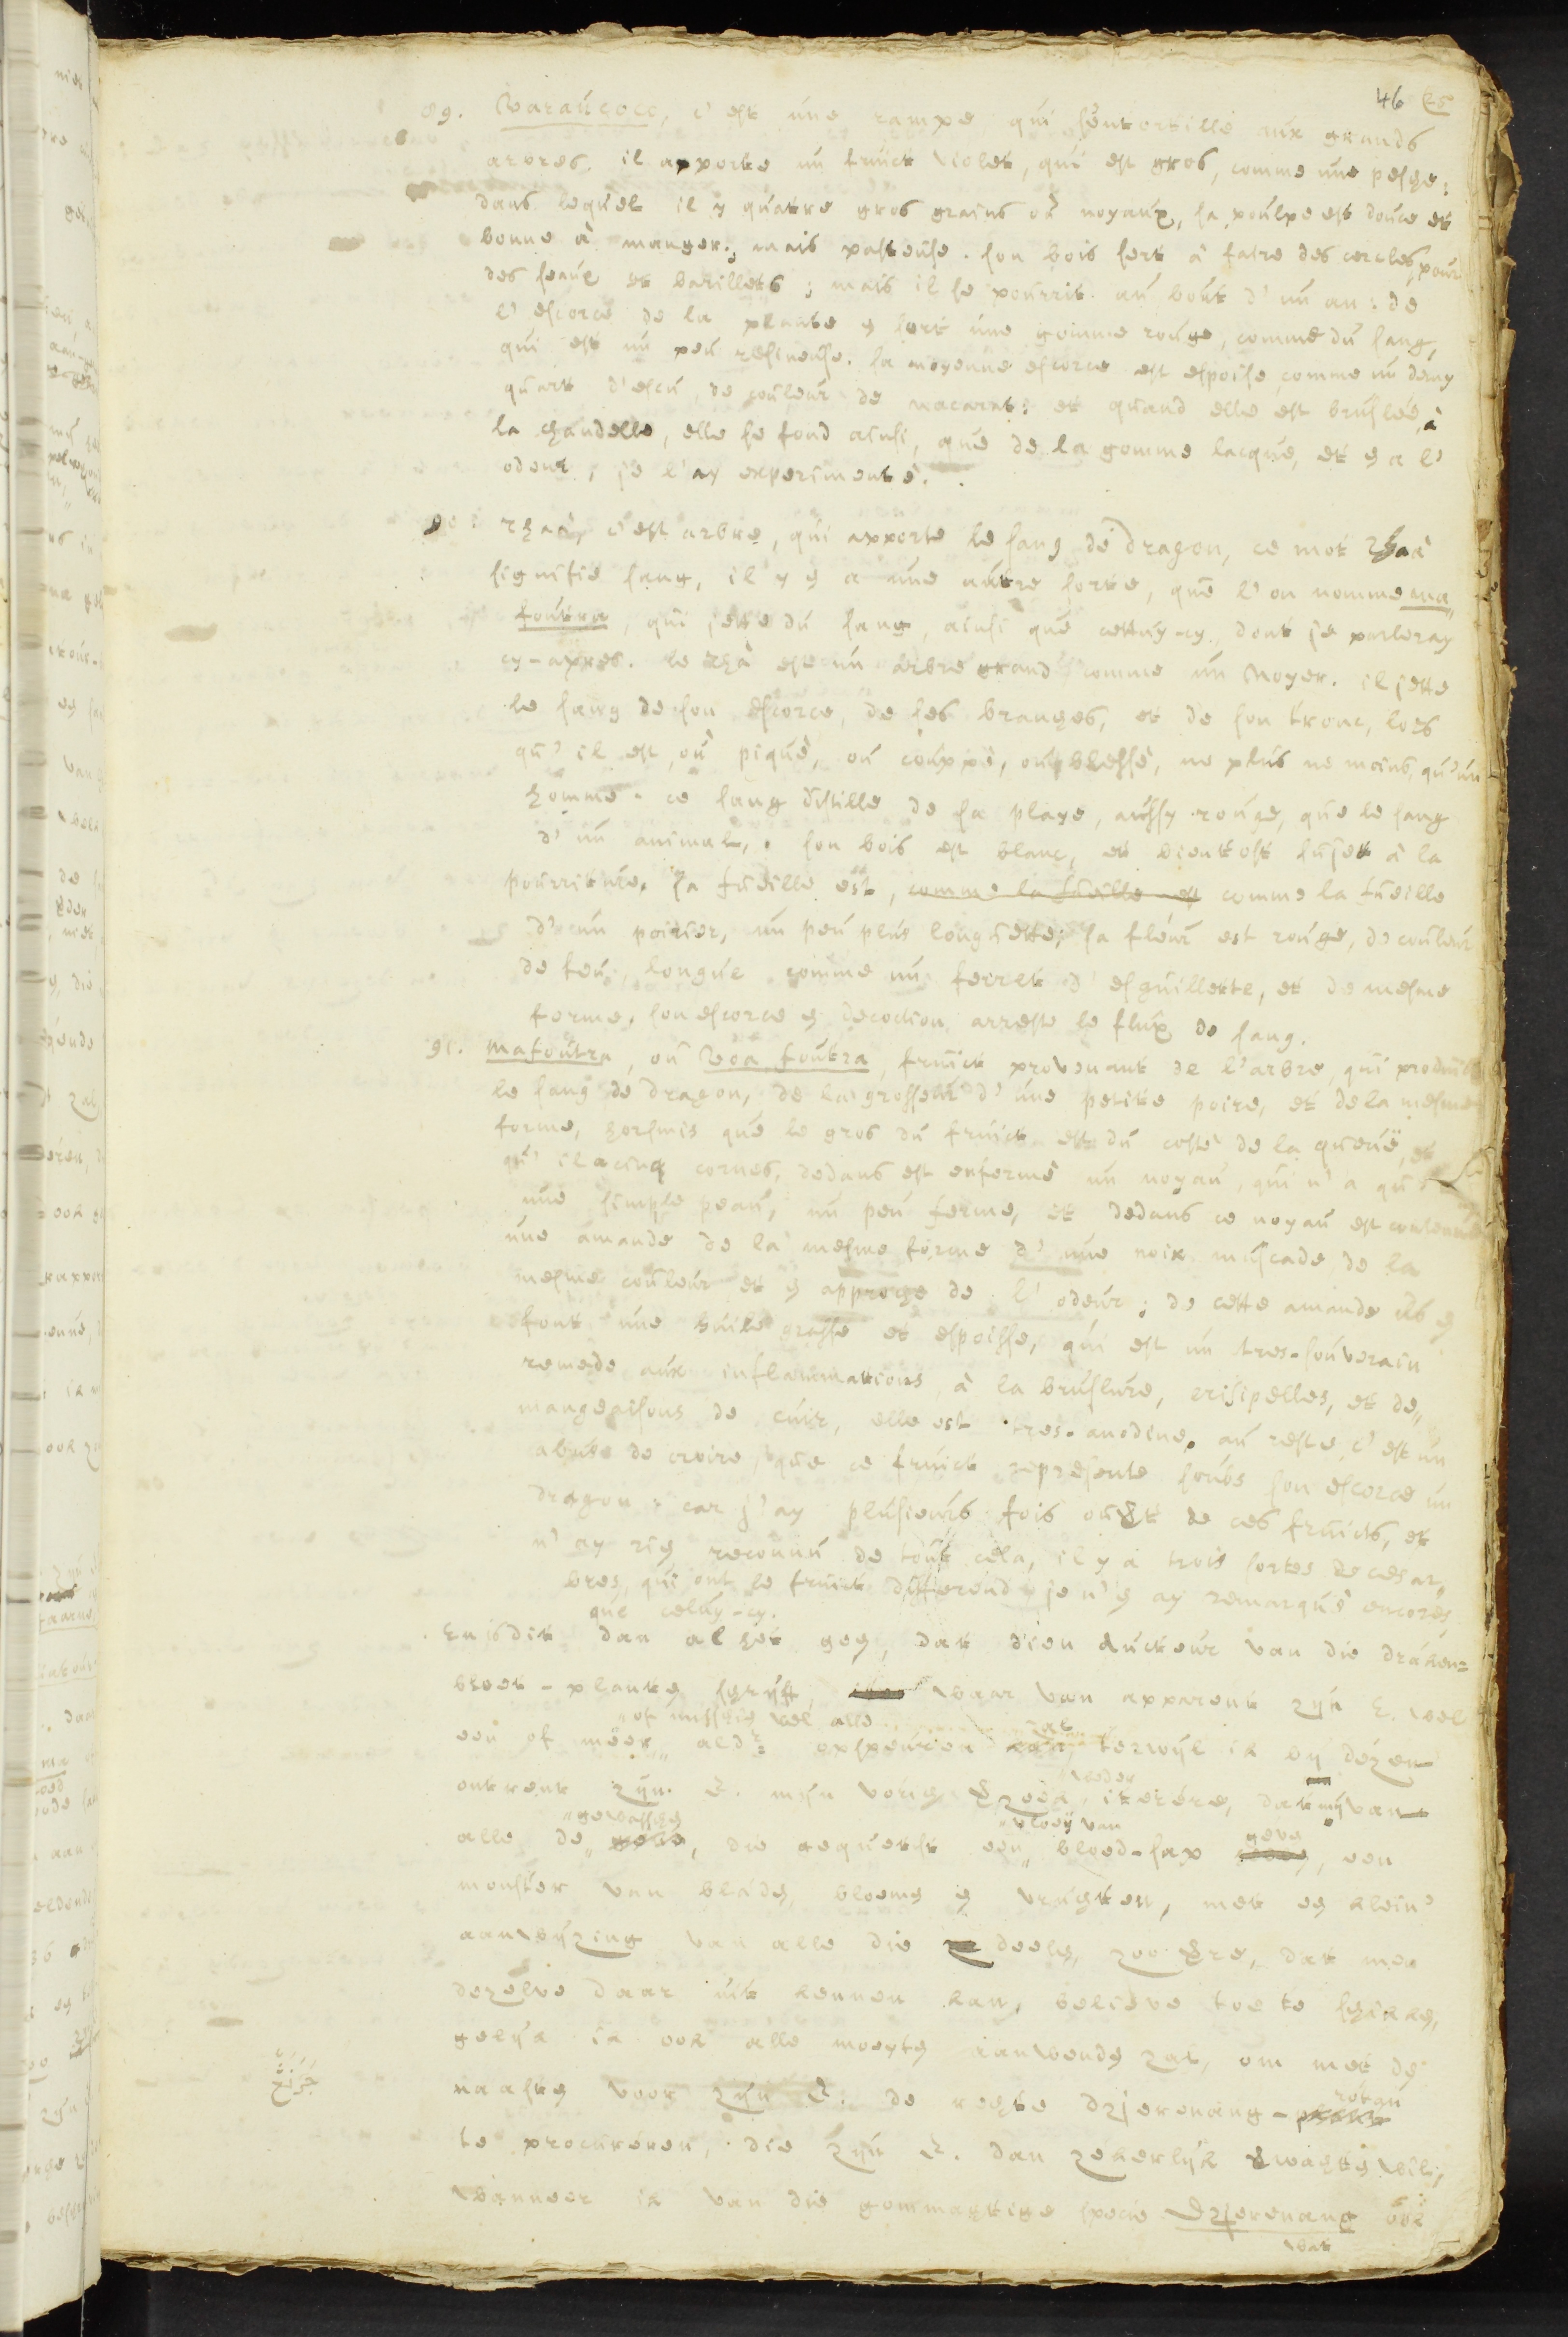 46 25
89. Varaucoco, c'est une rampe qui s'entortille aux grands
arbres. il apporte un fruict violet, qui est gros, comme une pesche:
dans lequel il y quatre gros grains où noyaux, sa poulpe est douce et
bonne à manger: mais pasteuse. son bois sert à faire des cercles, pour
des seaux et barillets; mais il se pourrit au bout d'un an: de
l'escorce de la plante en sort une gomme rouge, comme du sang,
qui est un peu resineuse. la moyenne escorce est espoise, comme un demy
quart d'escu, de couleur de nacarat: et quand elle est bruslée, à
la chandelle, elle se fond ainsi, que de la gomme lacque, et en a l'
odeur, je l'ay experimenté.
90: rhaa, c'est arbre, qui apporte le sang de dragon, ce mot rhaa
signifie sang, il y en a une autre sorte, que l'on nomme ma„
foutra, qui jette du sang, ainsi que cettuy-cy, dont je parleray
cy-apres. le rhà est un arbre grand comme un noyer. il jette
le sang de son escorce, de ses branches, et de son tronc, lors
qu'il est, où piqué, ou couppé, ou blessé, ne plus ne moins, qu'un
homme. ce sang distille de sa playe, aussy rouge, que le sang
d'un animal. son bois est blanc, et bientost sujet à la
pourriture. sa fueille est, comme la fueille est comme la fueille
d'un poirier, un peu plus longuette; sa fleur est rouge, de couleur
de feu, longue comme un ferret d'esguillette, et de mesme
forme. son escorce en decoction arreste le flux de sang.
91. mafoutra, ou voa foutra, fruict provenant de l'arbre, qui produict
le sang de dragon, de la grosseur d'une petite poire, et de la mesme
forme, horsmis que le gros du fruict est du costé de la queuë, et
qu'il a cinq cornes, dedans est enfermé un noyau, qui n'a qu'
une simple peau, un peu ferme, et dedans ce noyau est contenue
une amande de la mesme forme d'une noix muscade, de la
mesme couleur et en approche de l'odeur; de cette amande ils en
font une huile grasse et espoisse, qui est un tres-souverain
remede aux inflammations, à la bruslure, erisipelles, et de„
mangeaisons de cuir, elle est tres-anodine. au reste, c'est un
abus de croire, que ce fruict represente soubs son escorce un
dragon: car j'ay plusieurs fois ouvert de ces fruicts, et
n'ay rien reconnu de tout cela, il y a trois sortes de ces ar„
bres, qui ont le fruict differend, je n'en ay remarqué encores,
que celuy-cy.
En is dit dan al het gen, dat dien aucteur van die draken=
bloet-planten schrijft, waar van apparent zijn E. wel
„of misschien wel alle
een of meer„ ald: zal terwijl ik bij dezen
weder
ontrent zijn E. mijn vorig itererere, dat mij van
„gewassen bloeij van
alle de„ die gequetst een„ bloed-sap geve, een
monster van bladen, bloemen en vruchten, met en klein
aanwijzing van alle die deelen, zoo dat men
dezelve daar uit kennen kan, believe toe te schikken,
gelijk ik ook alle moeyten aanwenden zal, om met de
naasten voor zijn E. de rechte dzjerenang- rotan
te procureren, die zijn E. dan zekerlijk verwachten wil,
wanneer ik van die gommachtige specie Dzjerenang ook
wat
جَرَنَڠْ